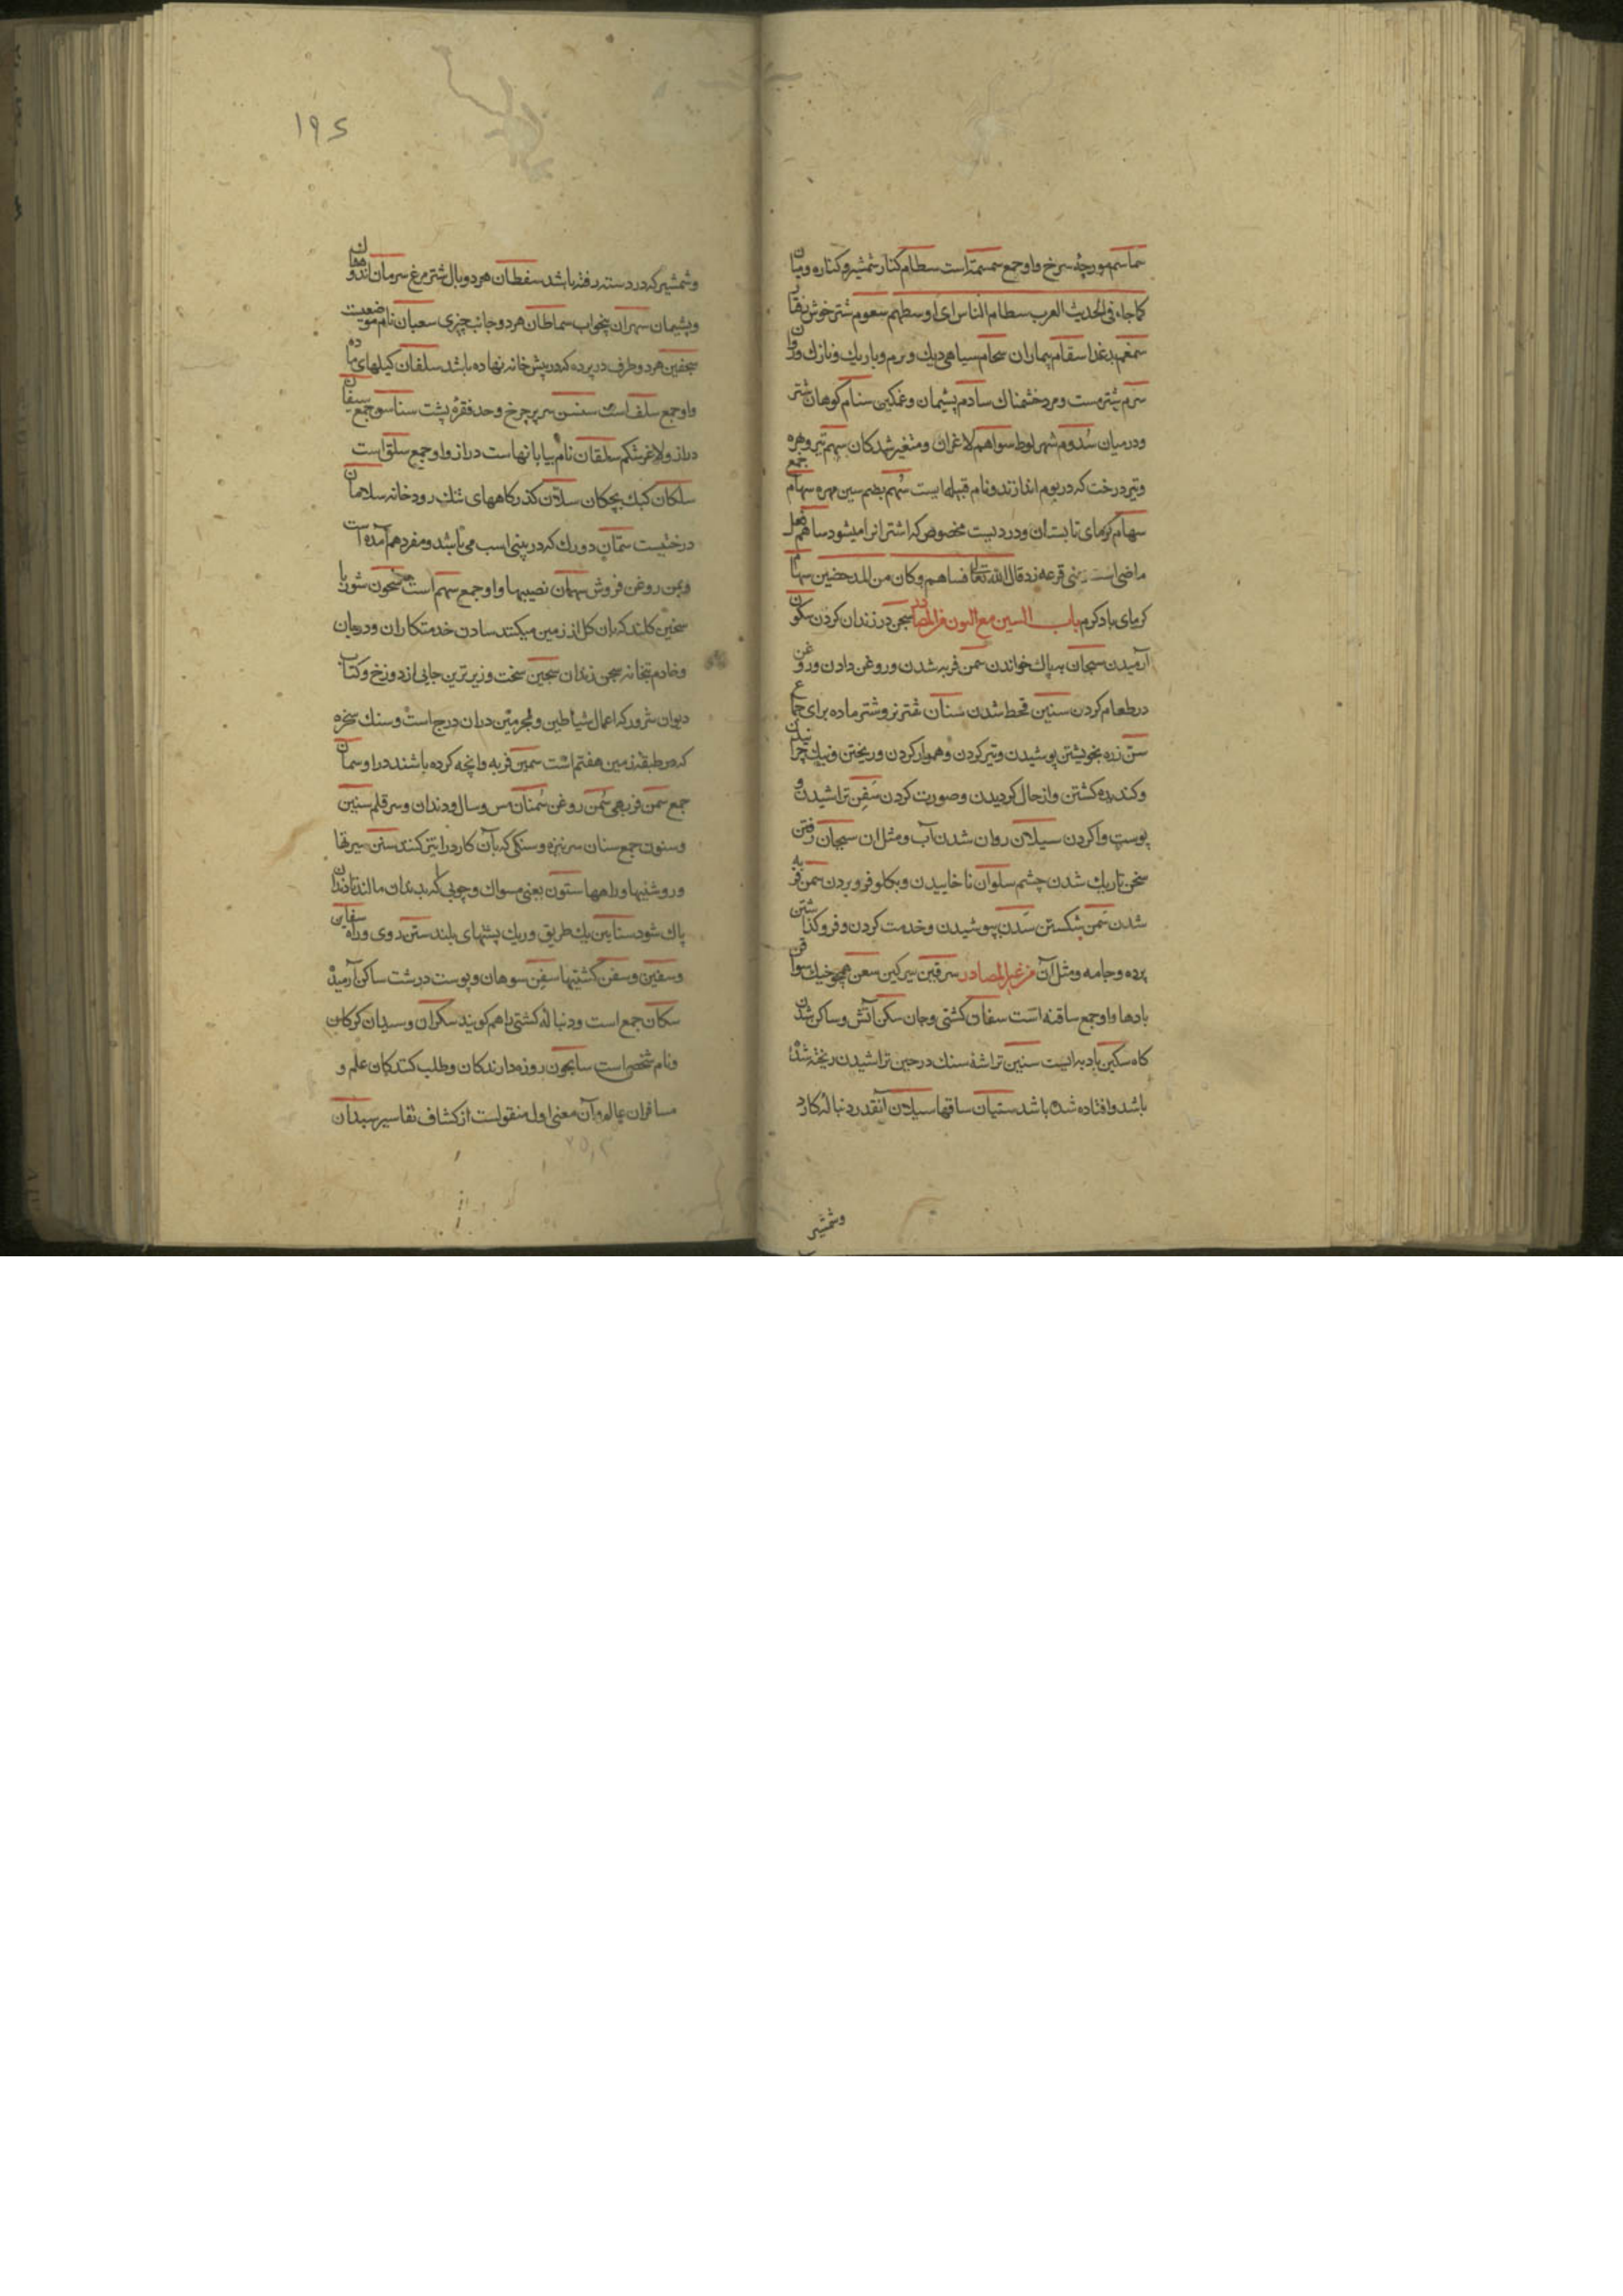 سماسم مورچهٔ سرخ واو جمع سمسمة است سطام کنار شمشیر و کناره و میان
کما جاء فی الحدیث العرب سطام الناس ای اوسطهم سعوم شتر خوش رفتار
سمغم بدغذا سقام بیماران سحام سیاهی دیک و نرم و باریك و نازك و روان
سرم شتر مست و مرد خشمناك سادم پشیمان و غمکین سنام کوهان شتر
و درمیان سُدوم شهر لوط سواهم لاغران و متغیر شدکان سهم تیر و بهره
و تیر درخت که در بوم اندازند و نام قبیله‌ایست سُهم بضم سین مهره سهام جمع
سهام کرمای تابستان و دردیست مخصوص که اشتران را میشود ساهم فعل
ماضی است یعنی قرعه زد قال الله تعالی فساهم و کان من المدحضین سهام
کرمای باد کرم باب السین مع النون من المصادر سجن در زندان کردن سکون
آرمیدن سبحان بپاك خواندن سمن فربه شدن و روغن دادن و روغن
در طعام کردن سنین قحط شدن سنان شتر نر و شتر ماده برای جماع
سنّ زره بخویشتن پوشیدن و تیز کردن و هموار کردن و ریختن و نیك چرانیدن
و کندیده کشتن و از حال کردیدن و صورت کردن سَفن تراشیدن و
پوست وا کردن سیلان روان شدن آب و مثل ان سیحان رفتن
سخن تاریك شدن چشم سلوان ناخاییدن و بکلو فرو بردن سمن فربه
شدن سَمن شکستن سَدن بپوشیدن و خدمت کردن و فرو کذاشتن
پرده و جامه و مثل آن من غیر المصادر سرقین سرکین سعن همچو خیك سوافن
بادها واو جمع سافنه است سفان کشتی وجان سکن آتش و ساکن شدن
کاه سکین بادیه ایست سنین تراشهٔ سنك در حین تراشیدن ریخته شده
باشد و افتاده شده باشد ستیان ساقها سیلان آنقدر دنباله کارد
وشمشیر
۱۹۶
و شمشیر که در دسته رفته باشد سفطان هر دو بال شتر مرغ سرمان اندوهکان
و پشیمان سهران بیخواب سماطان هر دو جانب چیزی سعبان نام موضعیست
سجفین هر دو طرف در پرده که در پیش خانه نهاده باشد سلفان کیلهای ماده
واو جمع سلف است سنسن سر پر چرخ وحد فقرهٔ پشت سناسن جمع سیفان
دراز و لاغر شکم سلقان نام بیابانهاست دراز واو جمع سلق است
سلکان کبك بچکان سلاّن کذرکاههای تنك رودخانه سلامان
درختیست سمّان دو رك که در بینی اسب می باشد و مفرد هم آمده است
و بمن روغن فروش سهمان نصیبها واو جمع سهم است سحون شوربا
سخین کلند که بان کل از زمین میکنند سادن خدمتکاران و دربان
و خادم بتخانه سجن زندان سجین سخت و زیرترین جایی از دوزخ و کتاب
دیوان شرور که اعمال شیاطین و مجرمین دران درج است و سنك سخره
که در طبقه زمین هفتم است سمین فربه وانچه کرده باشند دراو سمان
جمع سمن فربهی سُمن روغن سُمنان س و سال و دندان و سر قلم سنین
و سنون جمع سنان سر نیزه و سنکی که بآن کارد را تیز کنند سنن سیرتها
و روشنیها و راهها ستون یعنی مسواك و چوبی که بدندان مالند تا دندان
پاك شود سناین یك طریق و ریك پشتهای بلند سنن روی و راه سفاین
و سفین و سفن کشتیها سفن سوهان و پوست درشت ساکن آرمیده
سکان جمع است و دنباله کشتی را هم کویند سکران و سیدان کرکان
و نام شخصی است سایحون روزه دارندکان و طلب کنندکان علم و
مسافران عالم و آن معنی اول منقولست از کشاف تفاسیر سبدان